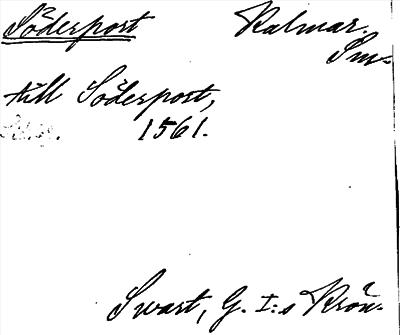 Söderport Kalmar.
Sm.
till Söderport,
1561.
Swart, G. I:s Krön.